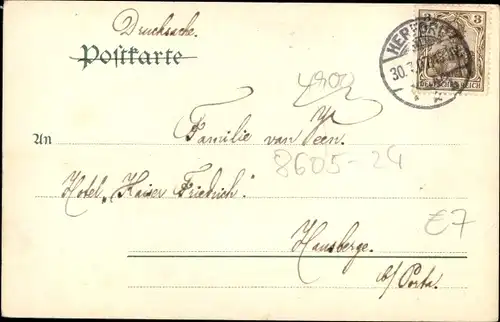 Drucksache.
Postkarte
3 3
DEUTSCHES REICH
30.3.
4900
An
Familie van Veen.
8605-24
Hotel "Kaiser Friedrich".
€7
Hausberge.
b/Porta.